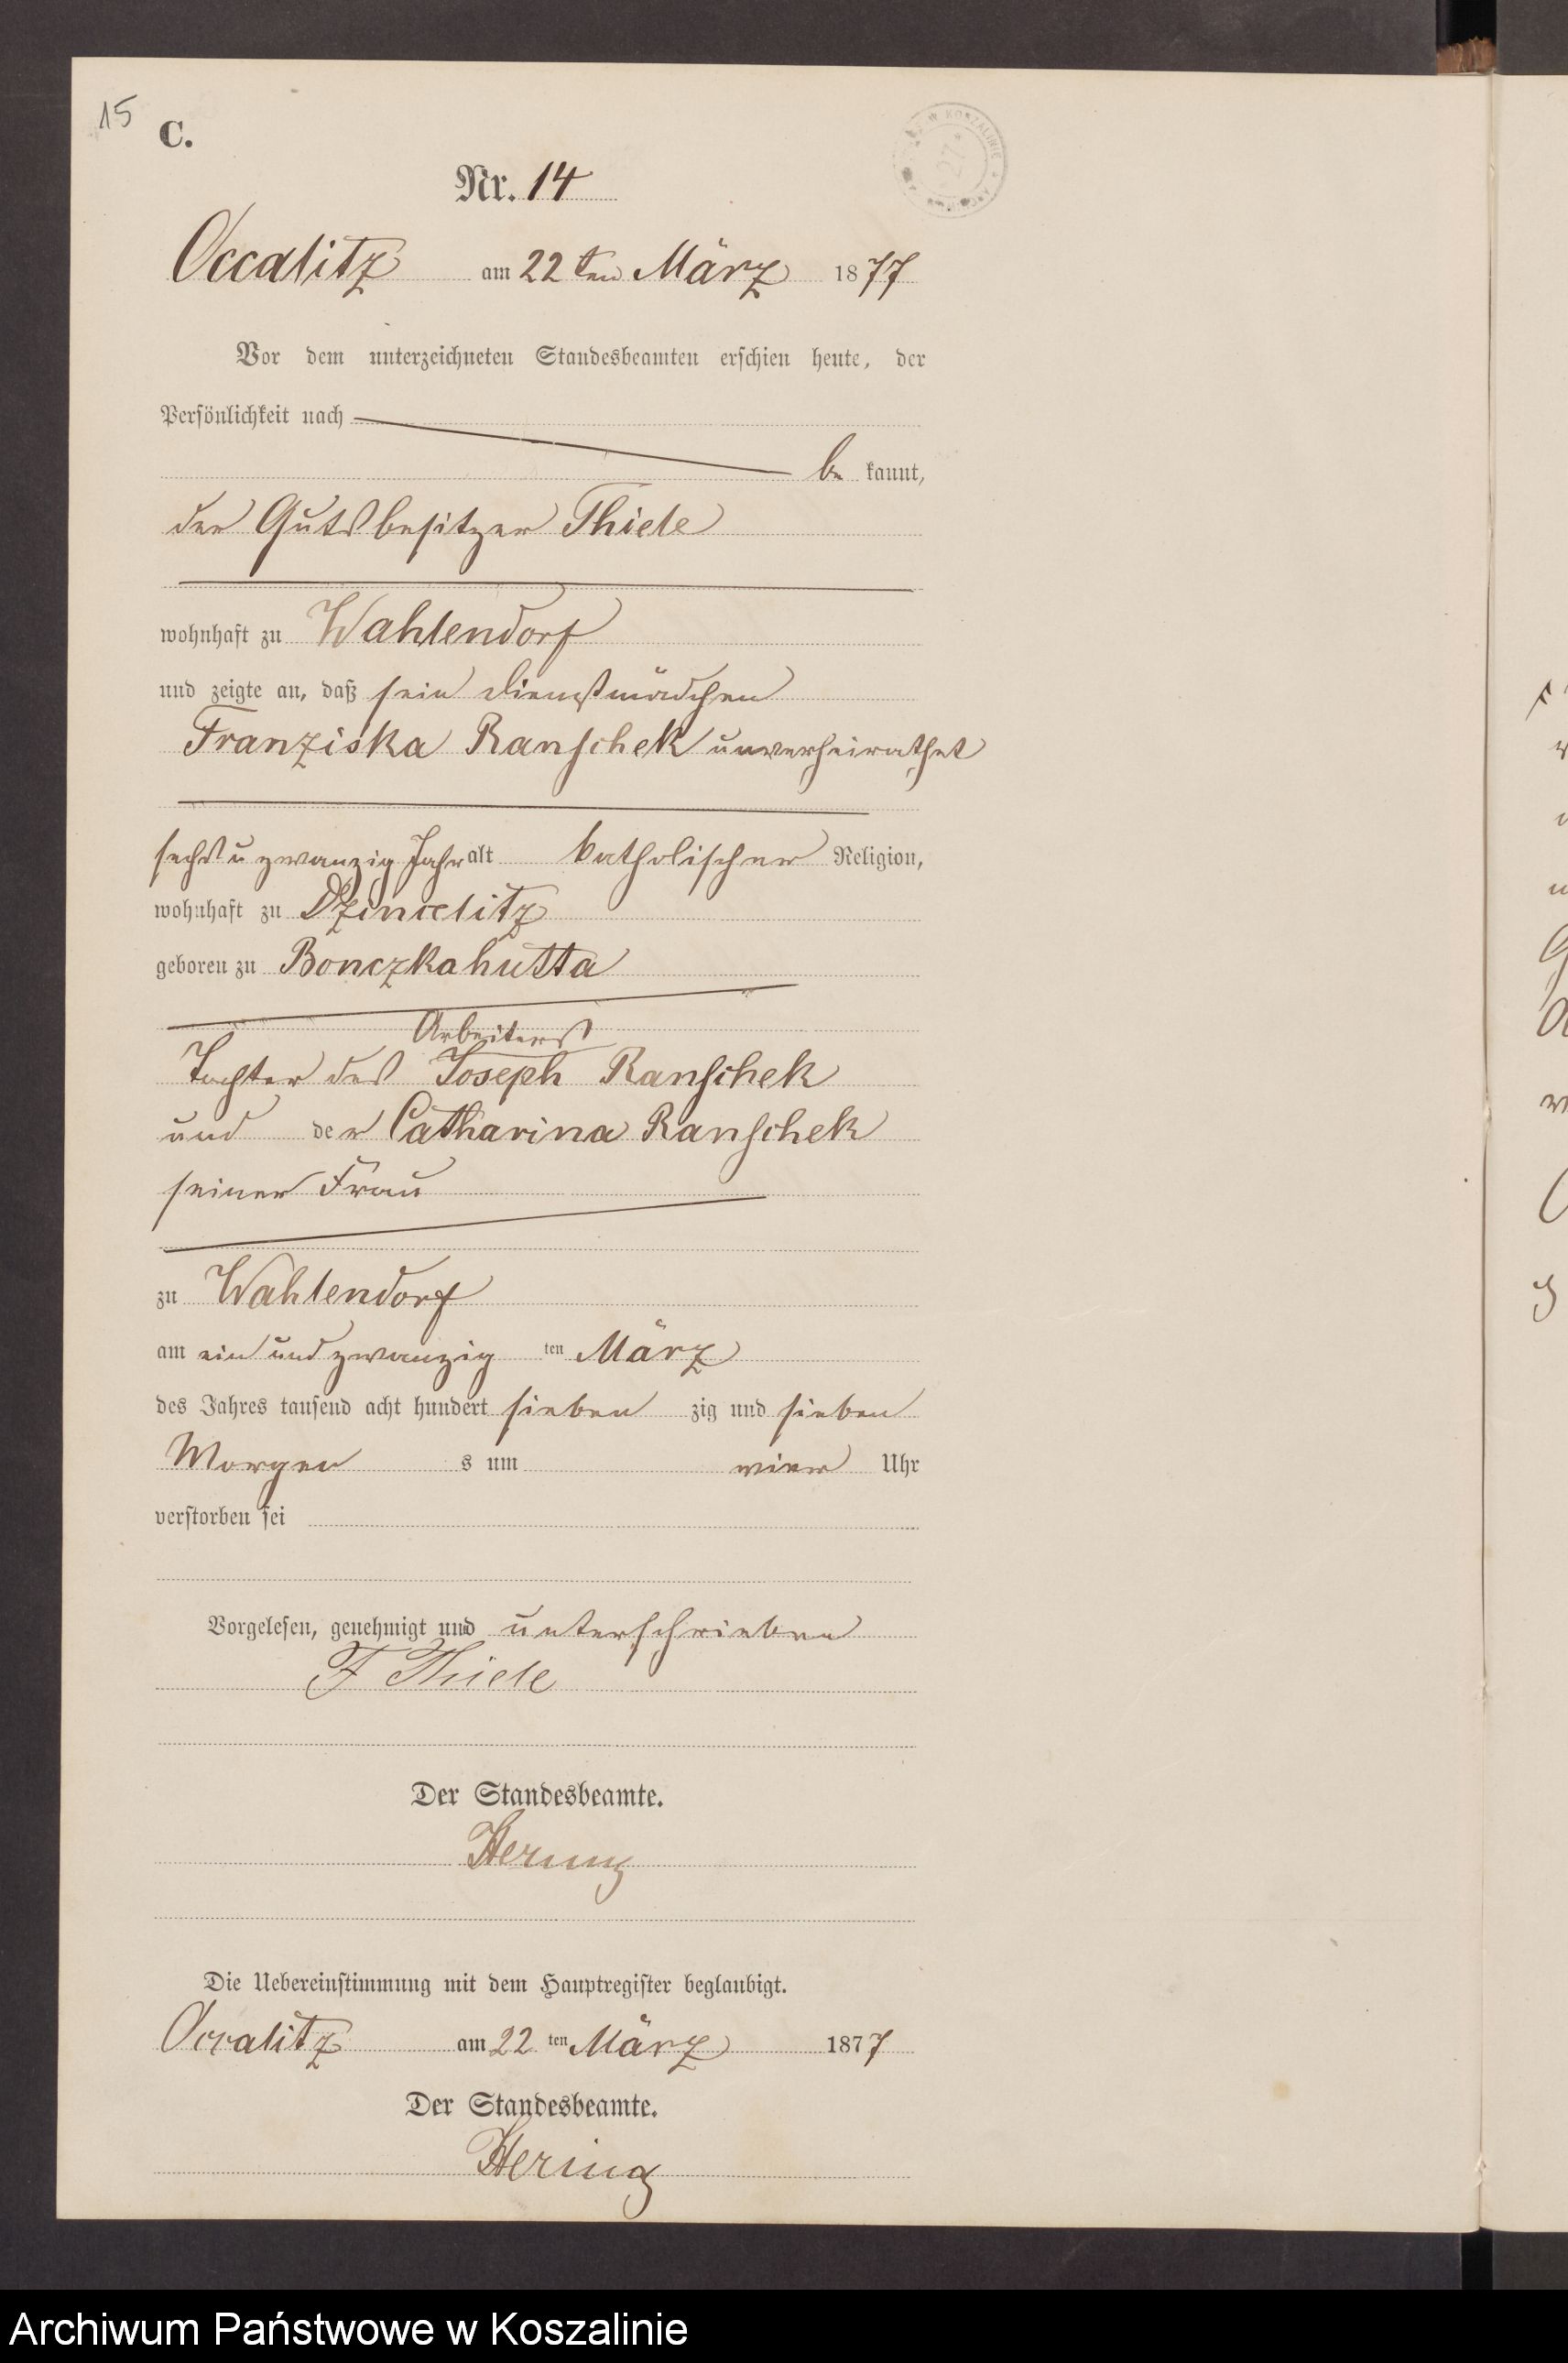 15
C.
Nr. 14
Occalitz am 22ten März 1877
Vor dem unterzeichneten Standesbeamten erschien heute, der
Persönlichkeit nach
be kannt,
der Gutsbesitzer Thiele
wohnhaft zu Wahlendorf
und zeigte an, daß sein Dienstmädchen
Franziska Ranschek unverheirathet
sechs u zwanzig Jahr alt katholischer Religion,
wohnhaft zu Dzincelitz
geboren zu Bonczkahutta
Arbeiters
Tochter des Joseph Ranschek
und der Catharina Ranschek
seiner Frau
zu Wahlendorf
am ein und zwanzig ten März
des Jahres tausend acht hundert sieben zig und sieben
Morgen s um vier Uhr
verstorben sei
Vorgelesen, genehmigt und unterschrieben
F Thiele
Der Standesbeamte.
Hering
Die Uebereinstimmung mit dem Hauptregister beglaubigt.
Occalitz am 22 ten März 1877
Der Standesbeamte.
Hering
Archiwum Państwowe w Koszalinie